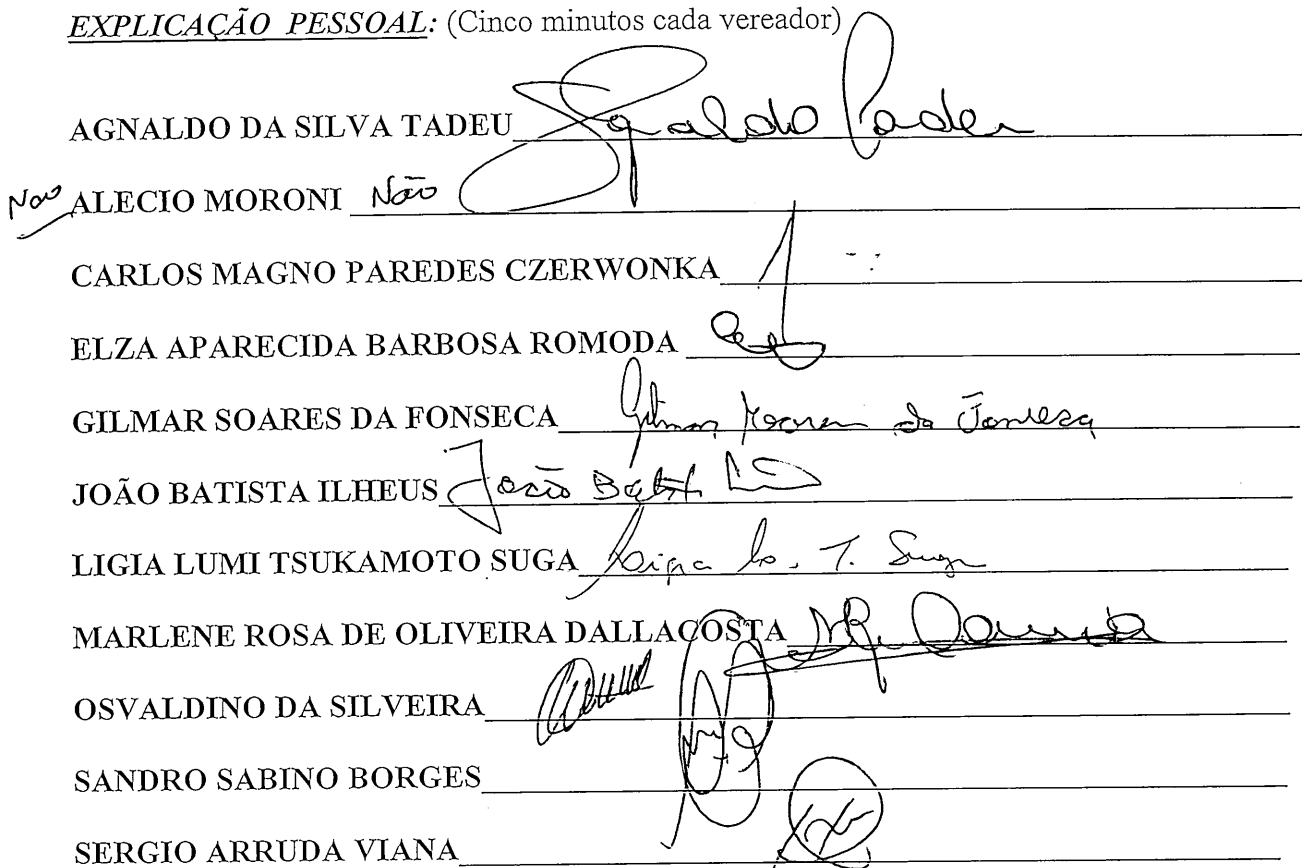 EXPLICAÇÃO PESSOAL: (Cinco minutos cada vereador)
AGNALDO DA SILVA TADEU Agnaldo Tadeu
Não ALECIO MORONI Não
CARLOS MAGNO PAREDES CZERWONKA
ELZA APARECIDA BARBOSA ROMODA
GILMAR SOARES DA FONSECA Gilmar Soares da Fonseca
JOÃO BATISTA ILHEUS João Batista
LIGIA LUMI TSUKAMOTO SUGA Ligia L. T. Suga
MARLENE ROSA DE OLIVEIRA DALLACOSTA
OSVALDINO DA SILVEIRA
SANDRO SABINO BORGES
SERGIO ARRUDA VIANA